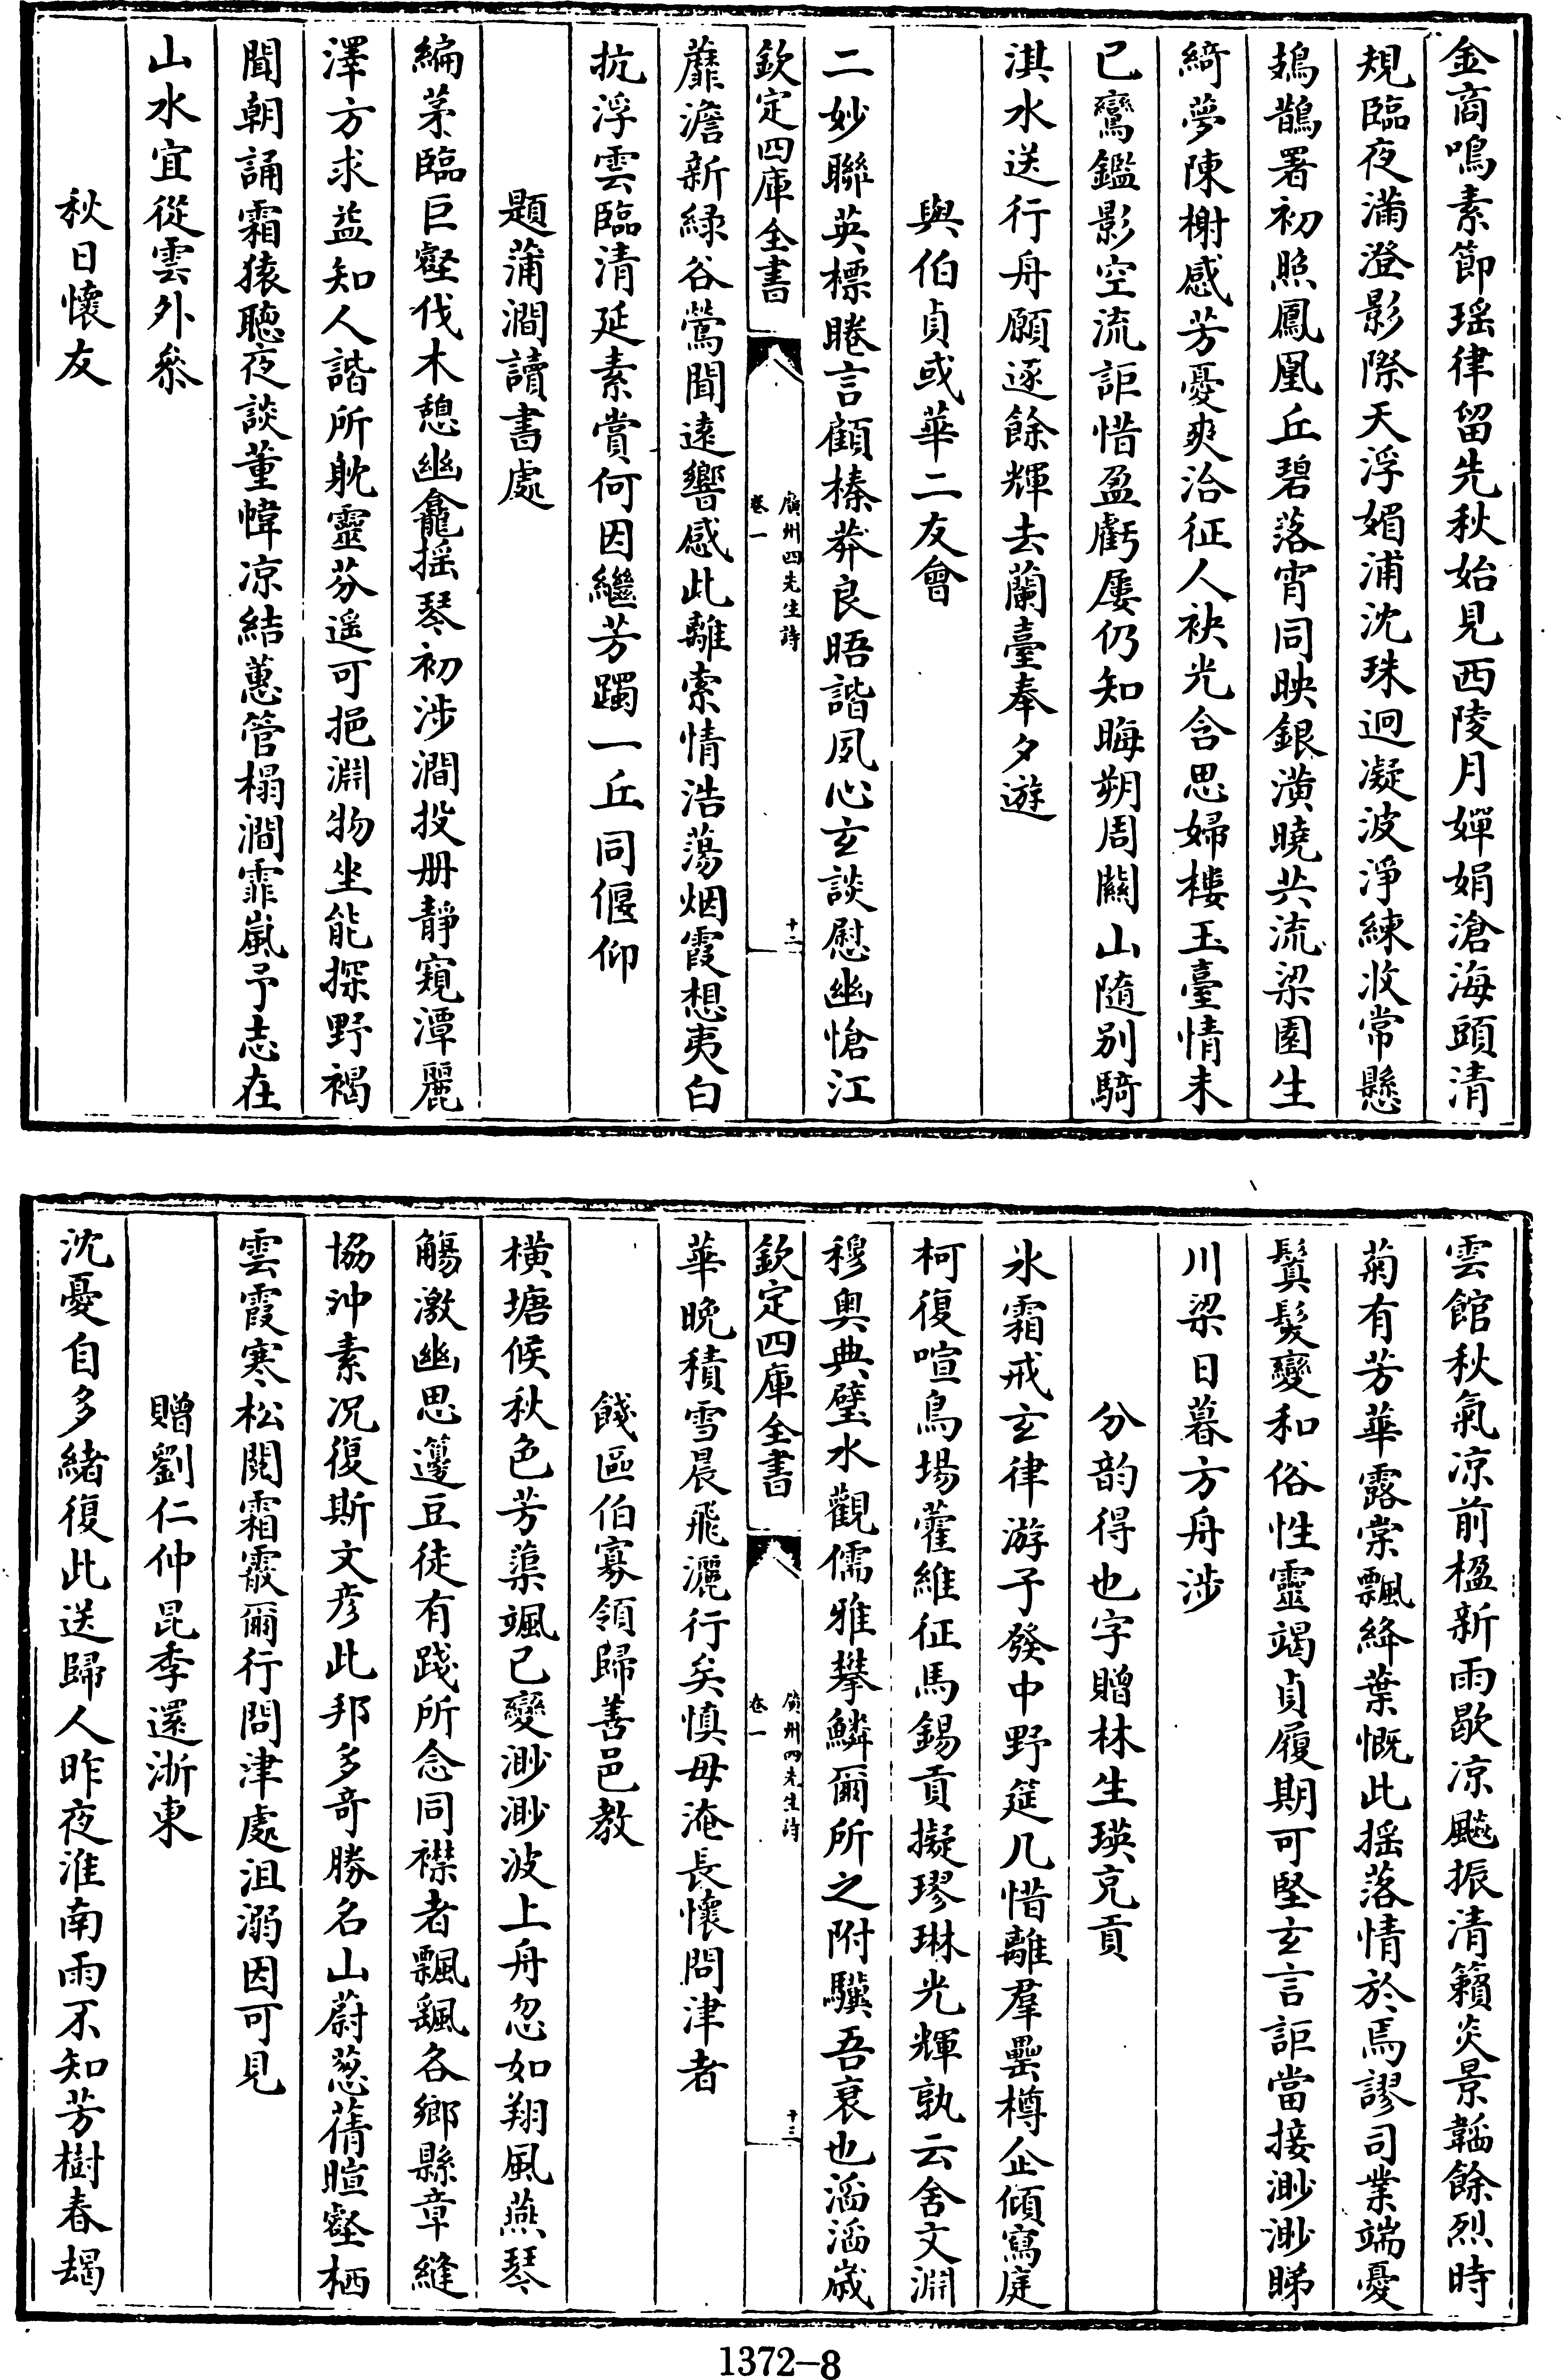 金商鳴素節瑶律留先秋始見西陵月嬋娟滄海頭清
規臨夜滿澄影際天浮媚浦沈珠迥凝波淨練收常懸
鳷鵲署初照鳳凰丘碧落宵同映銀潢曉共流梁園生
綺夢陳榭感芳憂爽洽征人袂光含思婦樓玉臺情未
已鸞鑑影空流詎惜盈虧屢仍知晦朔周關山隨别騎
淇水送行舟願逐餘輝去蘭臺奉夕遊
與伯貞或華二友會
二妙聯英標睠言顧榛莽良晤諧夙心玄談慰幽愴江
欽定四庫全書
廣州四先生詩
卷一
十二
蘼澹新緑谷鶯聞遠響感此離索情浩蕩烟霞想夷白
抗浮雲臨清延素賞何因繼芳躅一丘同偃仰
題蒲澗讀書處
編茅臨巨壑伐木憩幽龕揺琴初涉澗投册靜窺潭麗
澤方求益知人諧所躭靈芬遥可挹淵物坐能探野褐
聞朝誦霜猿聴夜談董幃凉結蕙管榻澗霏嵐予志在
山水宜從雲外叅
秋日懷友
雲館秋氣凉前楹新雨歇凉飈振清籟炎景韜餘烈時
菊有芳華露棠飄絳葉慨此揺落情於焉謬司業端憂
鬒髮變和俗性靈竭貞履期可堅玄言詎當接渺渺睇
川梁日暮方舟涉
分韵得也字贈林生瑛充貢
氷霜戒玄律游子發中野筵几惜離羣罍樽企傾寫庭
柯復喧鳥場藿維征馬錫貢擬璆琳光輝孰云舍文淵
穆奥典璧水觀儒雅攀鱗爾所之附驥吾衰也滔滔歲
欽定四庫全書
廣州四先生詩
卷一
十三
華晚積雪晨飛灑行矣慎毋淹長懷問津者
餞區伯寡領歸善邑教
横塘候秋色芳蕖颯已變渺渺波上舟忽如翔風燕琴
觴激幽思籩豆徒有踐所念同襟者飄颻各鄉縣章縫
協沖素况復斯文彦此邦多奇勝名山蔚葱蒨暄壑栖
雲霞寒松閱霜霰爾行問津處沮溺因可見
贈劉仁仲昆季還浙東
沈憂自多緒復此送歸人昨夜淮南雨不知芳樹春朅
1372-8